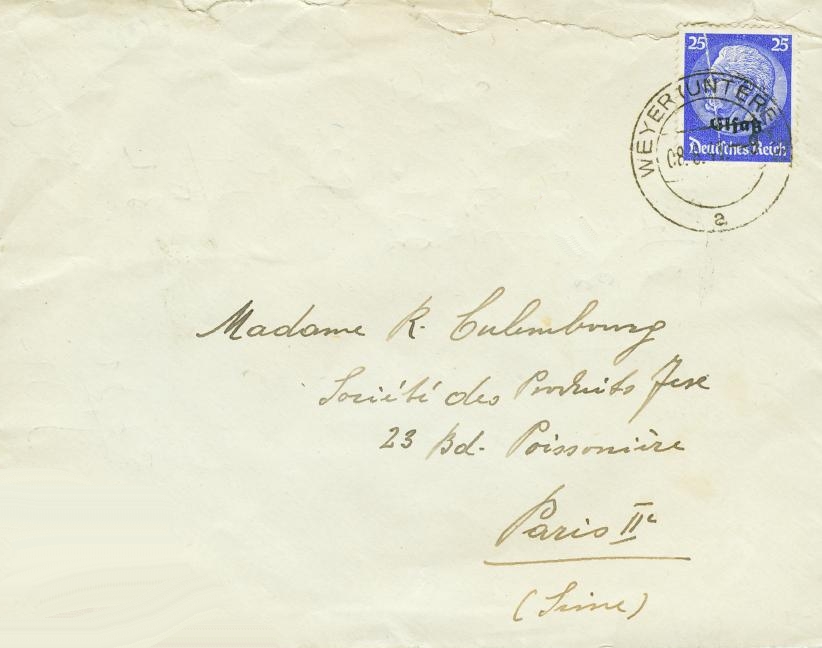 25 25
WEYER (UNTER
Elsaß
Deutsches Reich
08.
a
Madame R. Culembourg
Société des Produits
23 Bd. Poissonière
Paris IIe
(Seine)